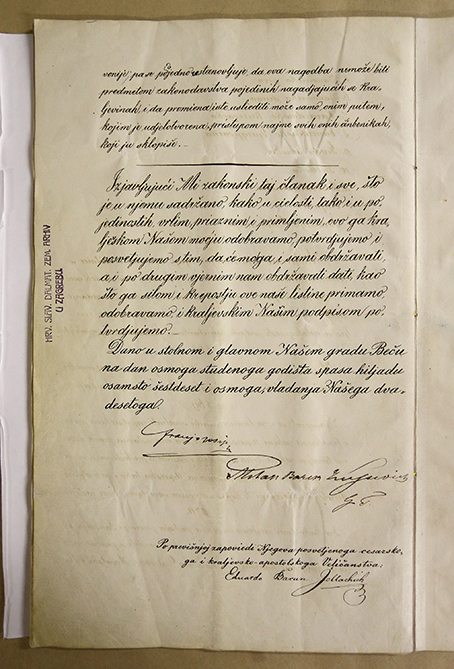 venije pa se pojedno ustanovljuje, da ova nagodba nemože biti
predmetom zakonodavstva pojedinih nagadjajućih se Kra-
ljevinah, i da promiena iste usliediti može samo onim putem,
kojim je udjelotvorena, pristupom najme svih onih čimbenikah,
koji ju sklopiše. -
Izjavljujući Mi zakonski taj članak i sve, što
je u njemu sadržano, kako u cielosti, tako i u po-
jedinostih, vrlim, priaznim i primljenim, evo ga kra-
ljevskom Našom moćju odobravamo, potvrdjujemo i
posvetjujemo s tim, da ćemo ga, i sami obdržavati,
a i po drugim vjernim nam obdržavati dati, kao
što ga silom i krepostju ove naše listine primamo,
odobravamo i kraljevskim Našim podpisom po-
tvrdjujemo.
Dano u stolnom i glavnom Našem gradu Beču
na dan osmoga studenoga godišta spasa hiljadu
osamsto šestdeset i osmoga, vladanja Našega dva-
desetoga.
Franjo Josip
Barun
Po previšnjoj zapoviedi Njegova posvetjenoga cesarsko-
ga i kraljevsko-apostolskoga Veličanstva:
Eduardo Barun Jellachich
HRV. SLAV. DALMAT. ZEM. ARHIV
U ZAGREBU.